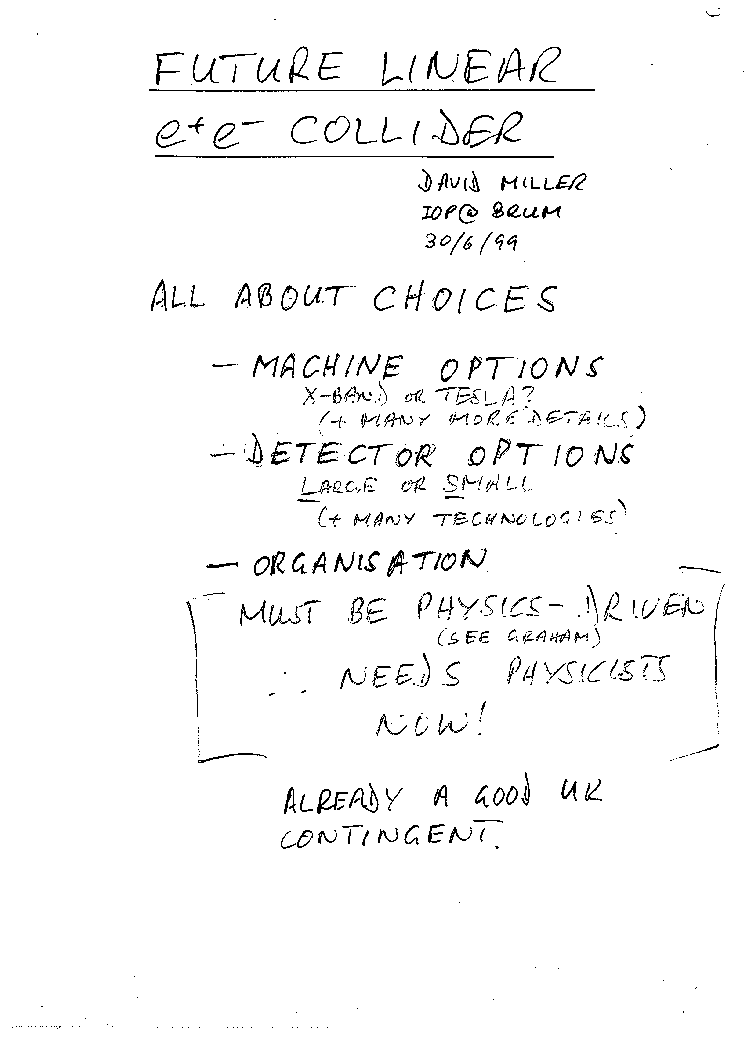 FUTURE LINEAR
e+e- COLLIDER
DAVID MILLER
IOP@ BRUM
30/6/99
ALL ABOUT CHOICES
— MACHINE OPTIONS
X-BAND OR TESLA?
(+ MANY MORE DETAILS)
— DETECTOR OPTIONS
LARGE OR SMALL
(+ MANY TECHNOLOGIES)
— ORGANISATION
MUST BE PHYSICS-DRIVEN
(SEE GRAHAM)
∴ NEEDS PHYSICISTS
NOW!
ALREADY A GOOD UK
CONTINGENT.